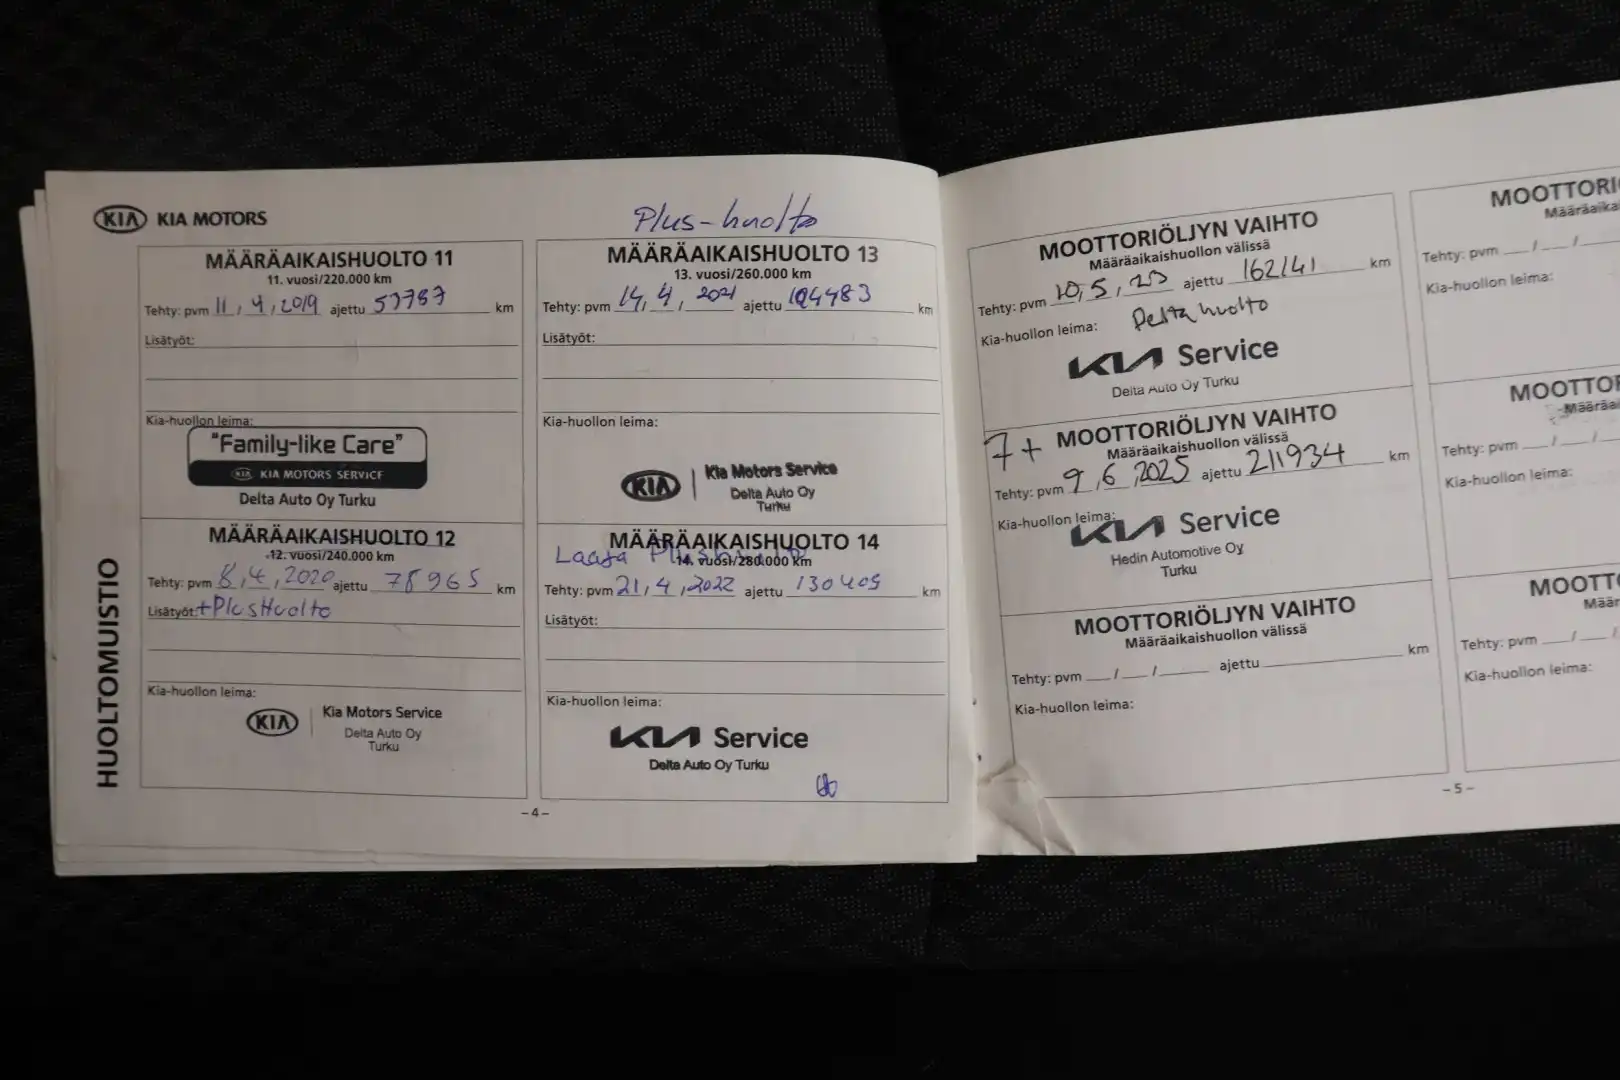 KIA KIA MOTORS
HUOLTOMUISTIO
MÄÄRÄAIKAISHUOLTO 11
11. vuosi/220.000 km
Tehty: pvm 11, 4, 2019 ajettu 53787 km
Lisätyöt:
Kia-huollon leima:
"Family-like Care"
KIA KIA MOTORS SERVICE
Delta Auto Oy Turku
MÄÄRÄAIKAISHUOLTO 12
12. vuosi/240.000 km
Tehty: pvm 8, 4, 2020 ajettu 78965 km
Lisätyöt: +PlusHuolto
Kia-huollon leima:
KIA Kia Motors Service
Delta Auto Oy
Turku
Plus-huolto
MÄÄRÄAIKAISHUOLTO 13
13. vuosi/260.000 km
Tehty: pvm 14, 4, 2021 ajettu 104483 km
Lisätyöt:
Kia-huollon leima:
KIA Kia Motors Service
Delta Auto Oy
Turku
MÄÄRÄAIKAISHUOLTO 14
Laaja Plushuolto
14. vuosi/280.000 km
Tehty: pvm 21, 4, 2022 ajettu 130409 km
Lisätyöt:
Kia-huollon leima:
KIA Service
Delta Auto Oy Turku
-4-
MOOTTORIÖLJYN VAIHTO
Määräaikaishuollon välissä
Tehty: pvm 10, 5, 23 ajettu 162141 km
Kia-huollon leima: Deltahuolto
KIA Service
Delta Auto Oy Turku
7+ MOOTTORIÖLJYN VAIHTO
Määräaikaishuollon välissä
Tehty: pvm 9, 6, 2025 ajettu 211934 km
Kia-huollon leima:
KIA Service
Hedin Automotive Oy
Turku
MOOTTORIÖLJYN VAIHTO
Määräaikaishuollon välissä
Tehty: pvm / / ajettu km
Kia-huollon leima:
MOOTTORI
Määräaika
Tehty: pvm / /
Kia-huollon leima:
MOOTTOR
Määräa
Tehty: pvm / /
Kia-huollon leima:
MOOTT
Määr
Tehty: pvm / /
Kia-huollon leima:
-5-